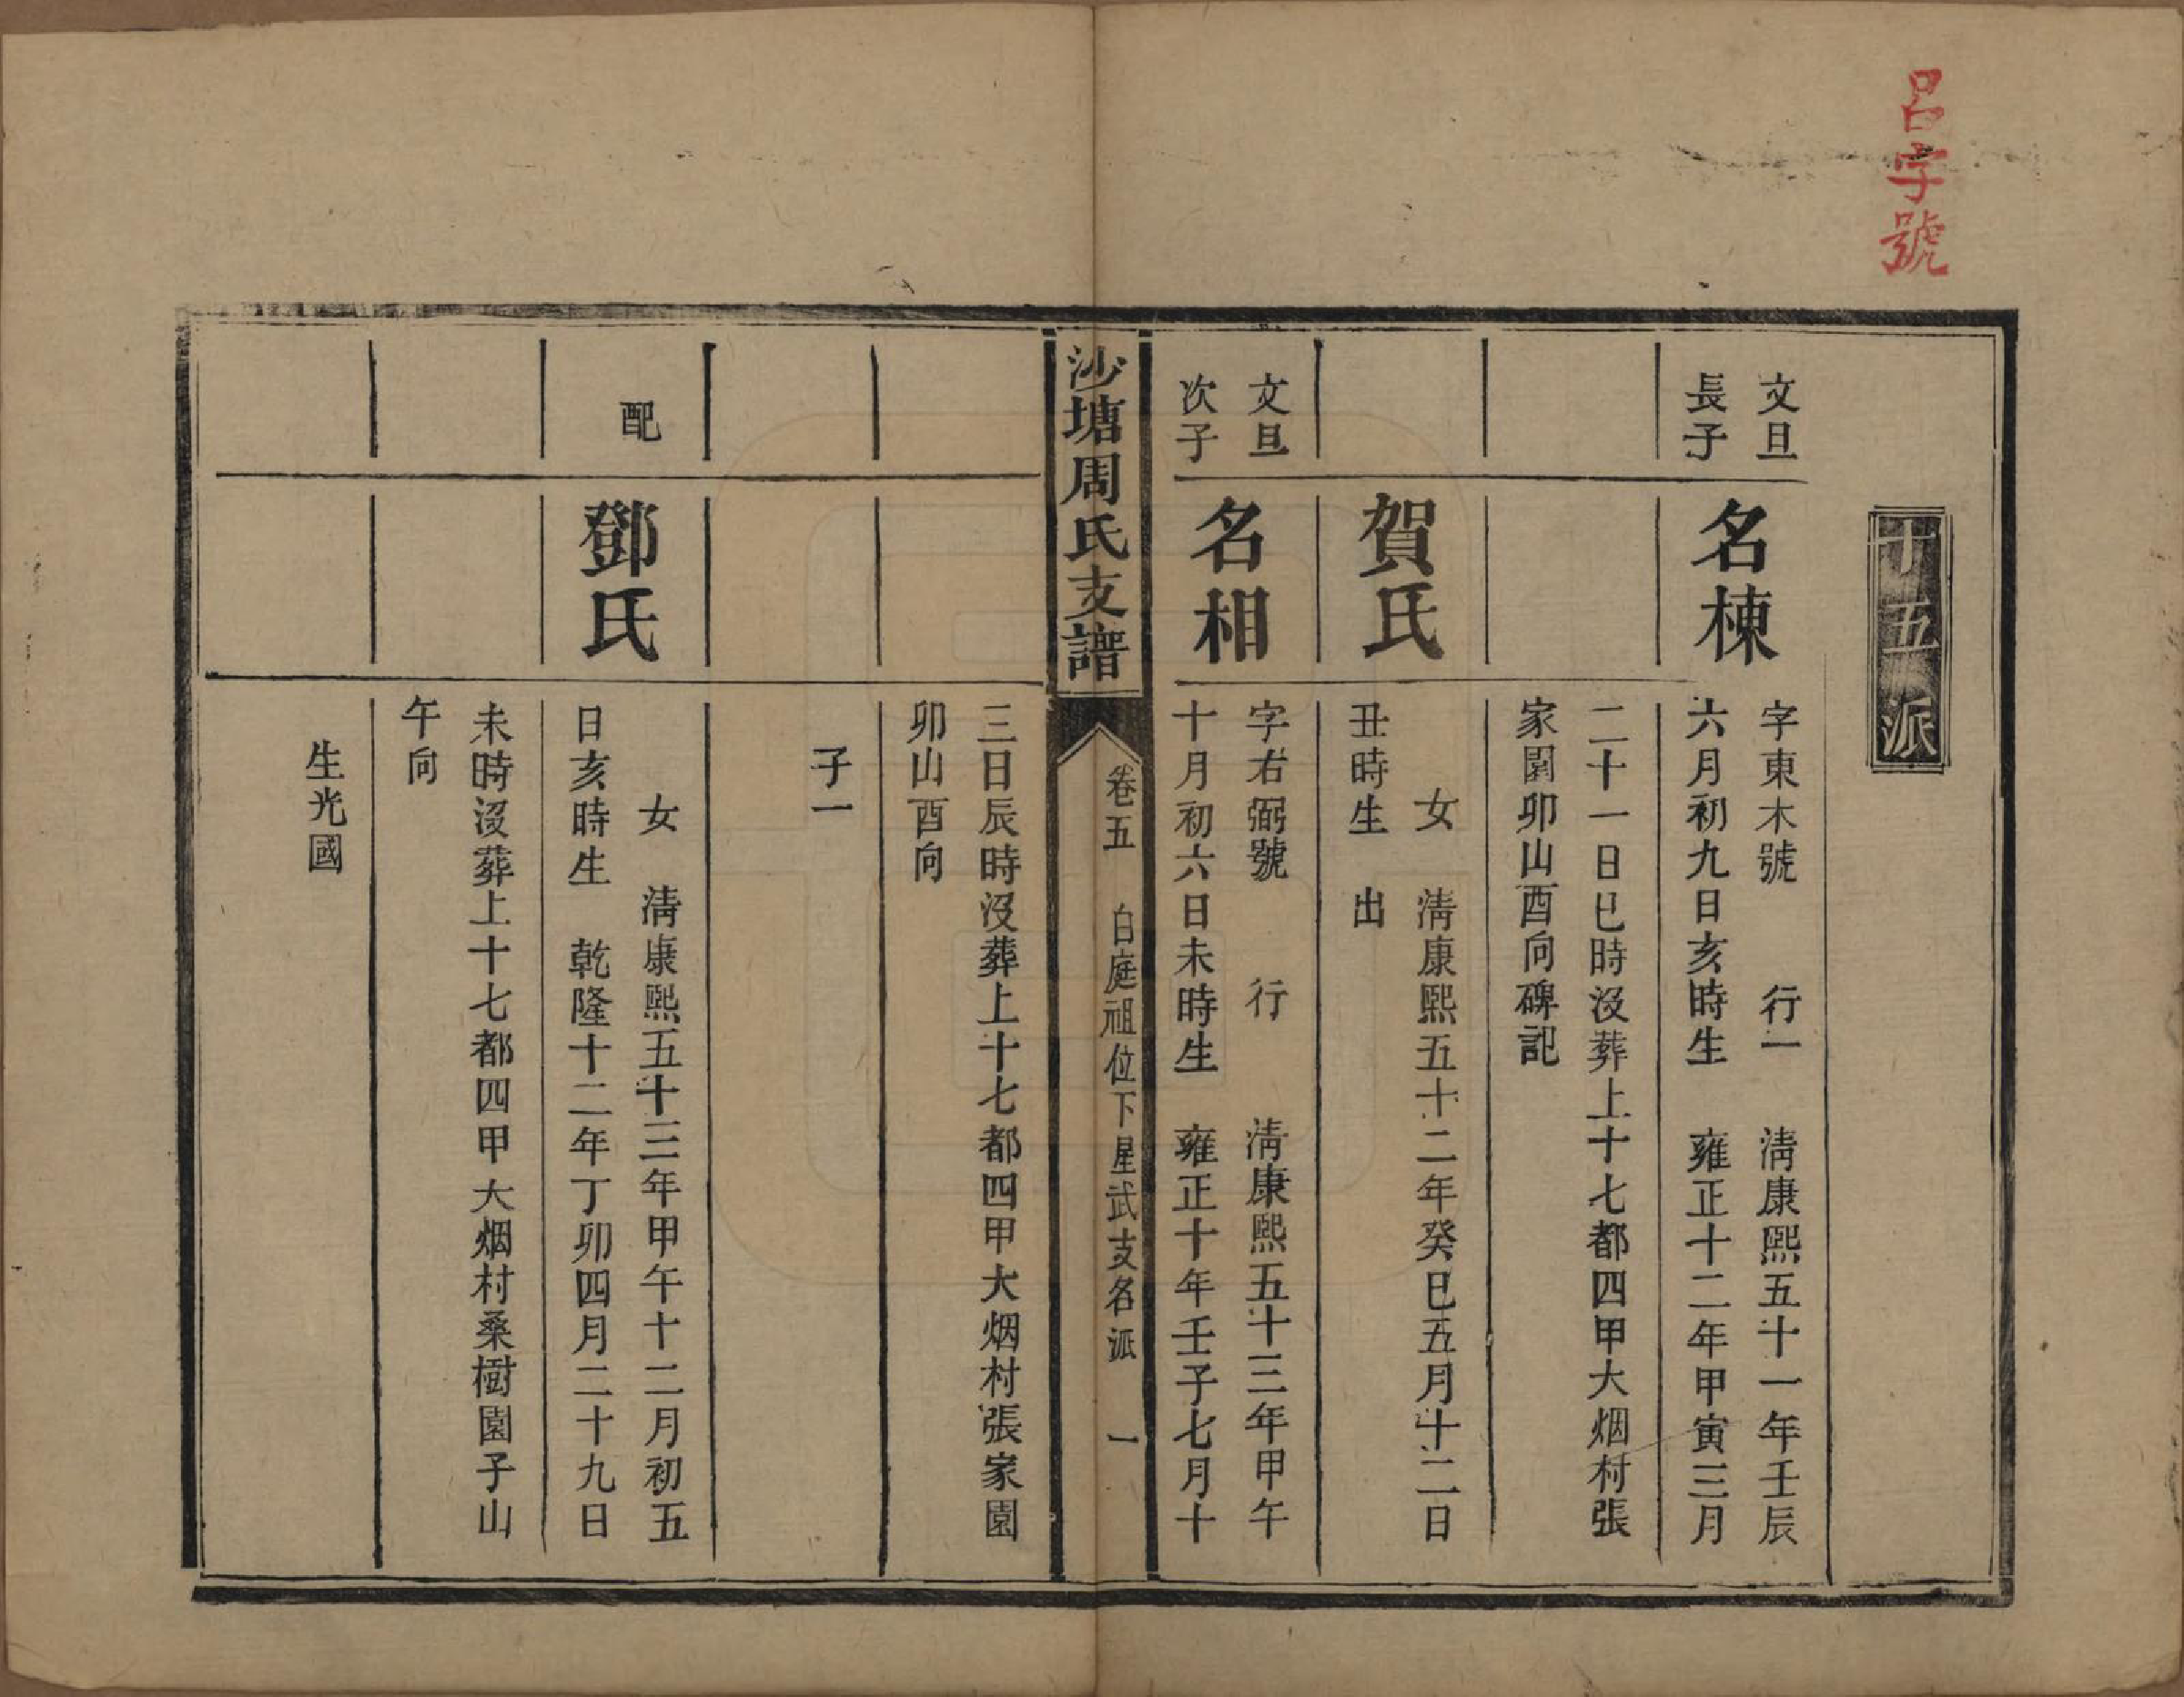 呂字號
十五派
文旦
長子
名棟
字東木號　行一　淸康熙五十一年壬辰
六月初九日亥時生　雍正十二年甲寅三月
二十一日巳時沒葬上十七都四甲大烟村張
家園卯山酉向碑記
賀氏
女　淸康熙五十二年癸巳五月十二日
丑時生　出
文旦
次子
名相
字右弼號　行　淸康熙五十三年甲午
十月初六日未時生　雍正十年壬子七月十
沙塘周氏支譜
卷五　白庭祖位下星武支名派　一
三日辰時沒葬上十七都四甲大烟村張家園
卯山酉向
子一
配
鄧氏
女　淸康熙五十三年甲午十二月初五
日亥時生　乾隆十二年丁卯四月二十九日
未時沒葬上十七都四甲大烟村桑樹園子山
午向
生光國